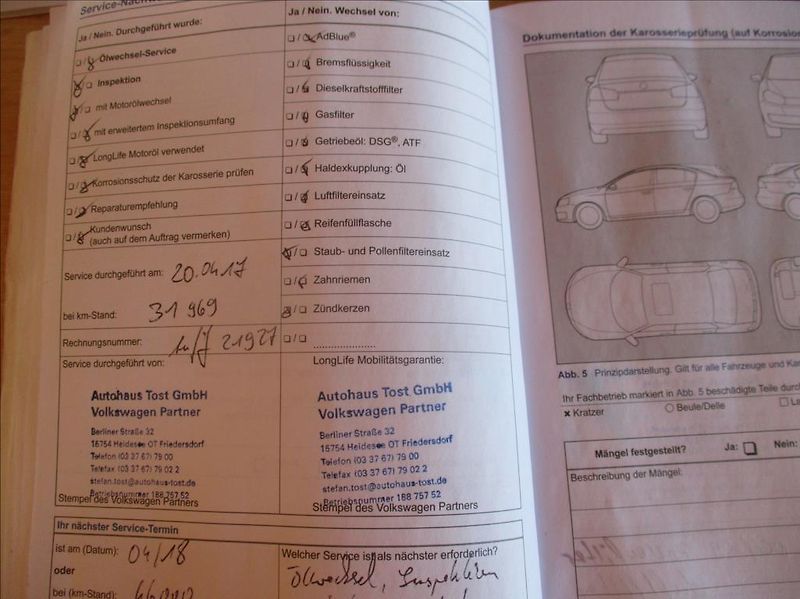 Service-Nachw
Ja / Nein. Durchgeführt wurde:
Ölwechsel-Service
Inspektion
mit Motorölwechsel
mit erweitertem Inspektionsumfang
LongLife Motoröl verwendet
Korrosionsschutz der Karosserie prüfen
Reparaturempfehlung
Kundenwunsch
(auch auf dem Auftrag vermerken)
Service durchgeführt am: 20.04.17
bei km-Stand: 31 969
Rechnungsnummer: 21927
Service durchgeführt von:
Autohaus Tost GmbH
Volkswagen Partner
Berliner Straße 32
15754 Heidesee OT Friedersdorf
Telefon (03 37 67) 79 00
Telefax (03 37 67) 79 02 2
stefan.tost@autohaus-tost.de
Betriebsnummer 188 757 52
Stempel des Volkswagen Partners
Ja / Nein. Wechsel von:
AdBlue®
Bremsflüssigkeit
Dieselkraftstofffilter
Gasfilter
Getriebeöl: DSG®, ATF
Haldexkupplung: Öl
Luftfiltereinsatz
Reifenfüllflasche
Staub- und Pollenfiltereinsatz
Zahnriemen
Zündkerzen
LongLife Mobilitätsgarantie:
Autohaus Tost GmbH
Volkswagen Partner
Berliner Straße 32
15754 Heidesee OT Friedersdorf
Telefon (03 37 67) 79 00
Telefax (03 37 67) 79 02 2
stefan.tost@autohaus-tost.de
Betriebsnummer 188 757 52
Stempel des Volkswagen Partners
Ihr nächster Service-Termin
ist am (Datum): 04/18
oder
bei (km-Stand):
Welcher Service ist als nächster erforderlich?
Ölwechsel, Inspektion
Dokumentation der Karosserieprüfung (auf Korrosion
Abb. 5 Prinzipdarstellung. Gilt für alle Fahrzeuge und Ka
Ihr Fachbetrieb markiert in Abb. 5 beschädigte Teile durch
x Kratzer Beule/Delle La
Mängel festgestellt? Ja: Nein:
Beschreibung der Mängel: